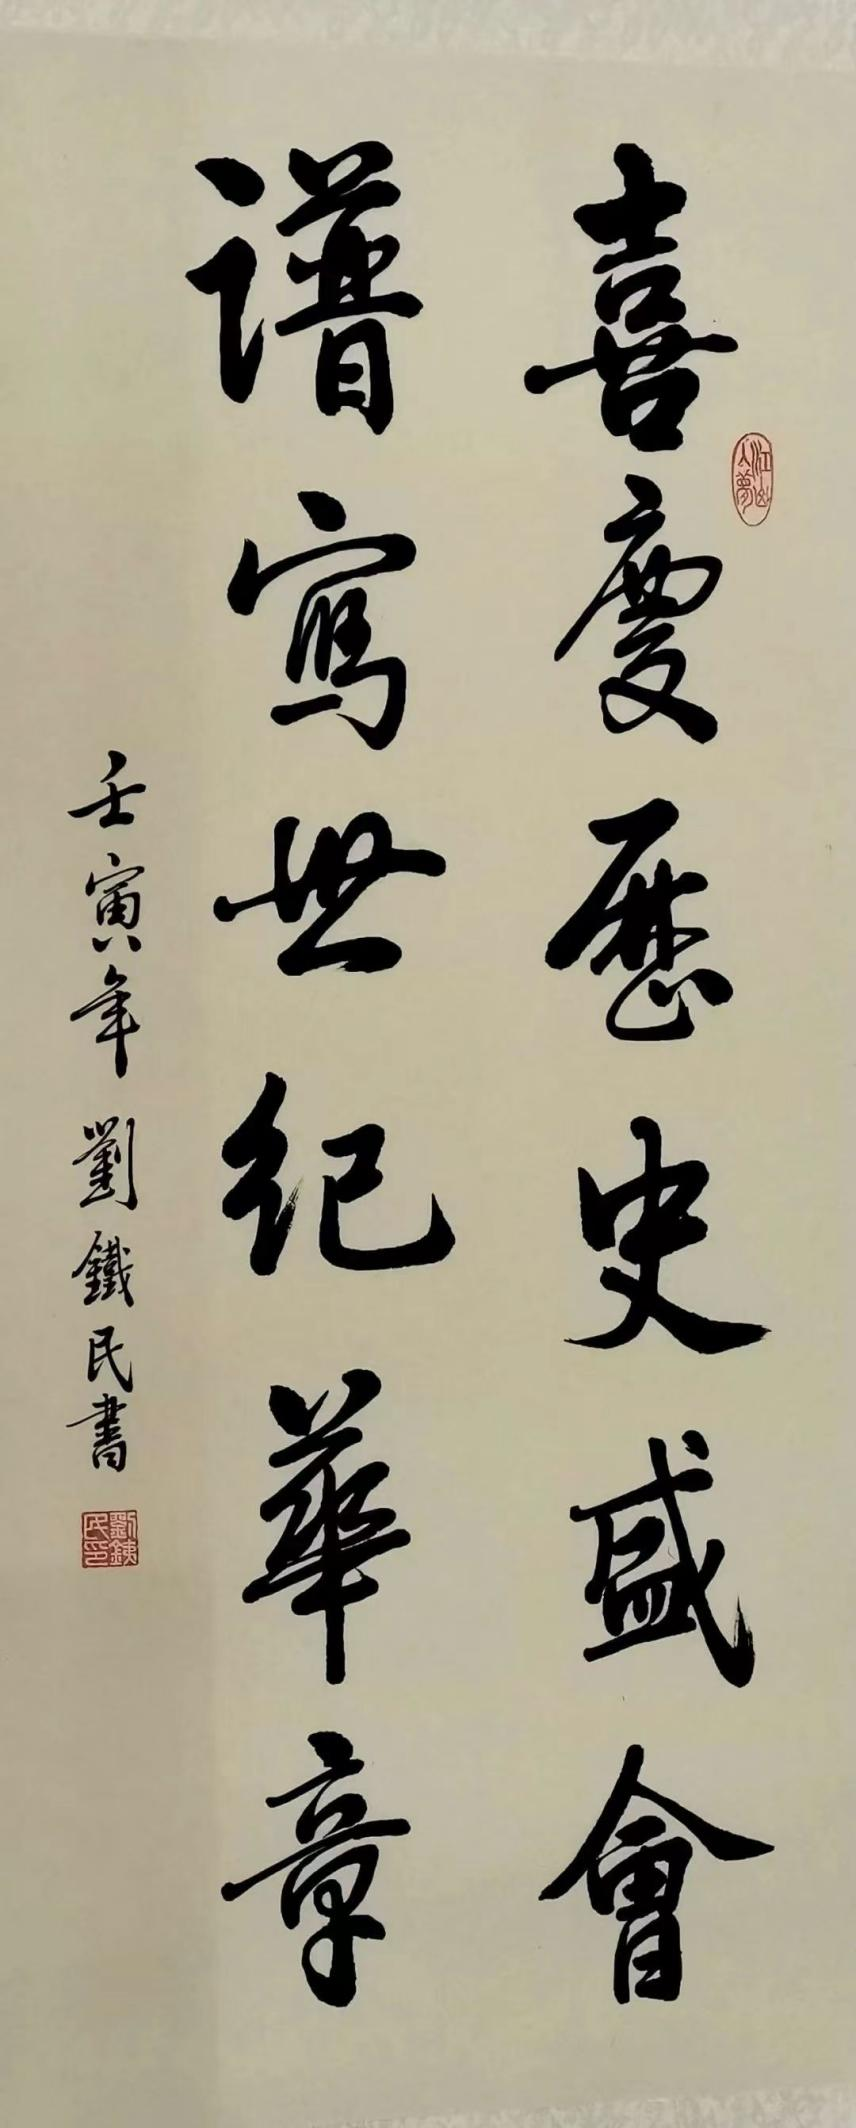 喜慶歷史盛會
譜寫世紀華章
壬寅年 劉鐵民書
江山入夢
劉鐵民印